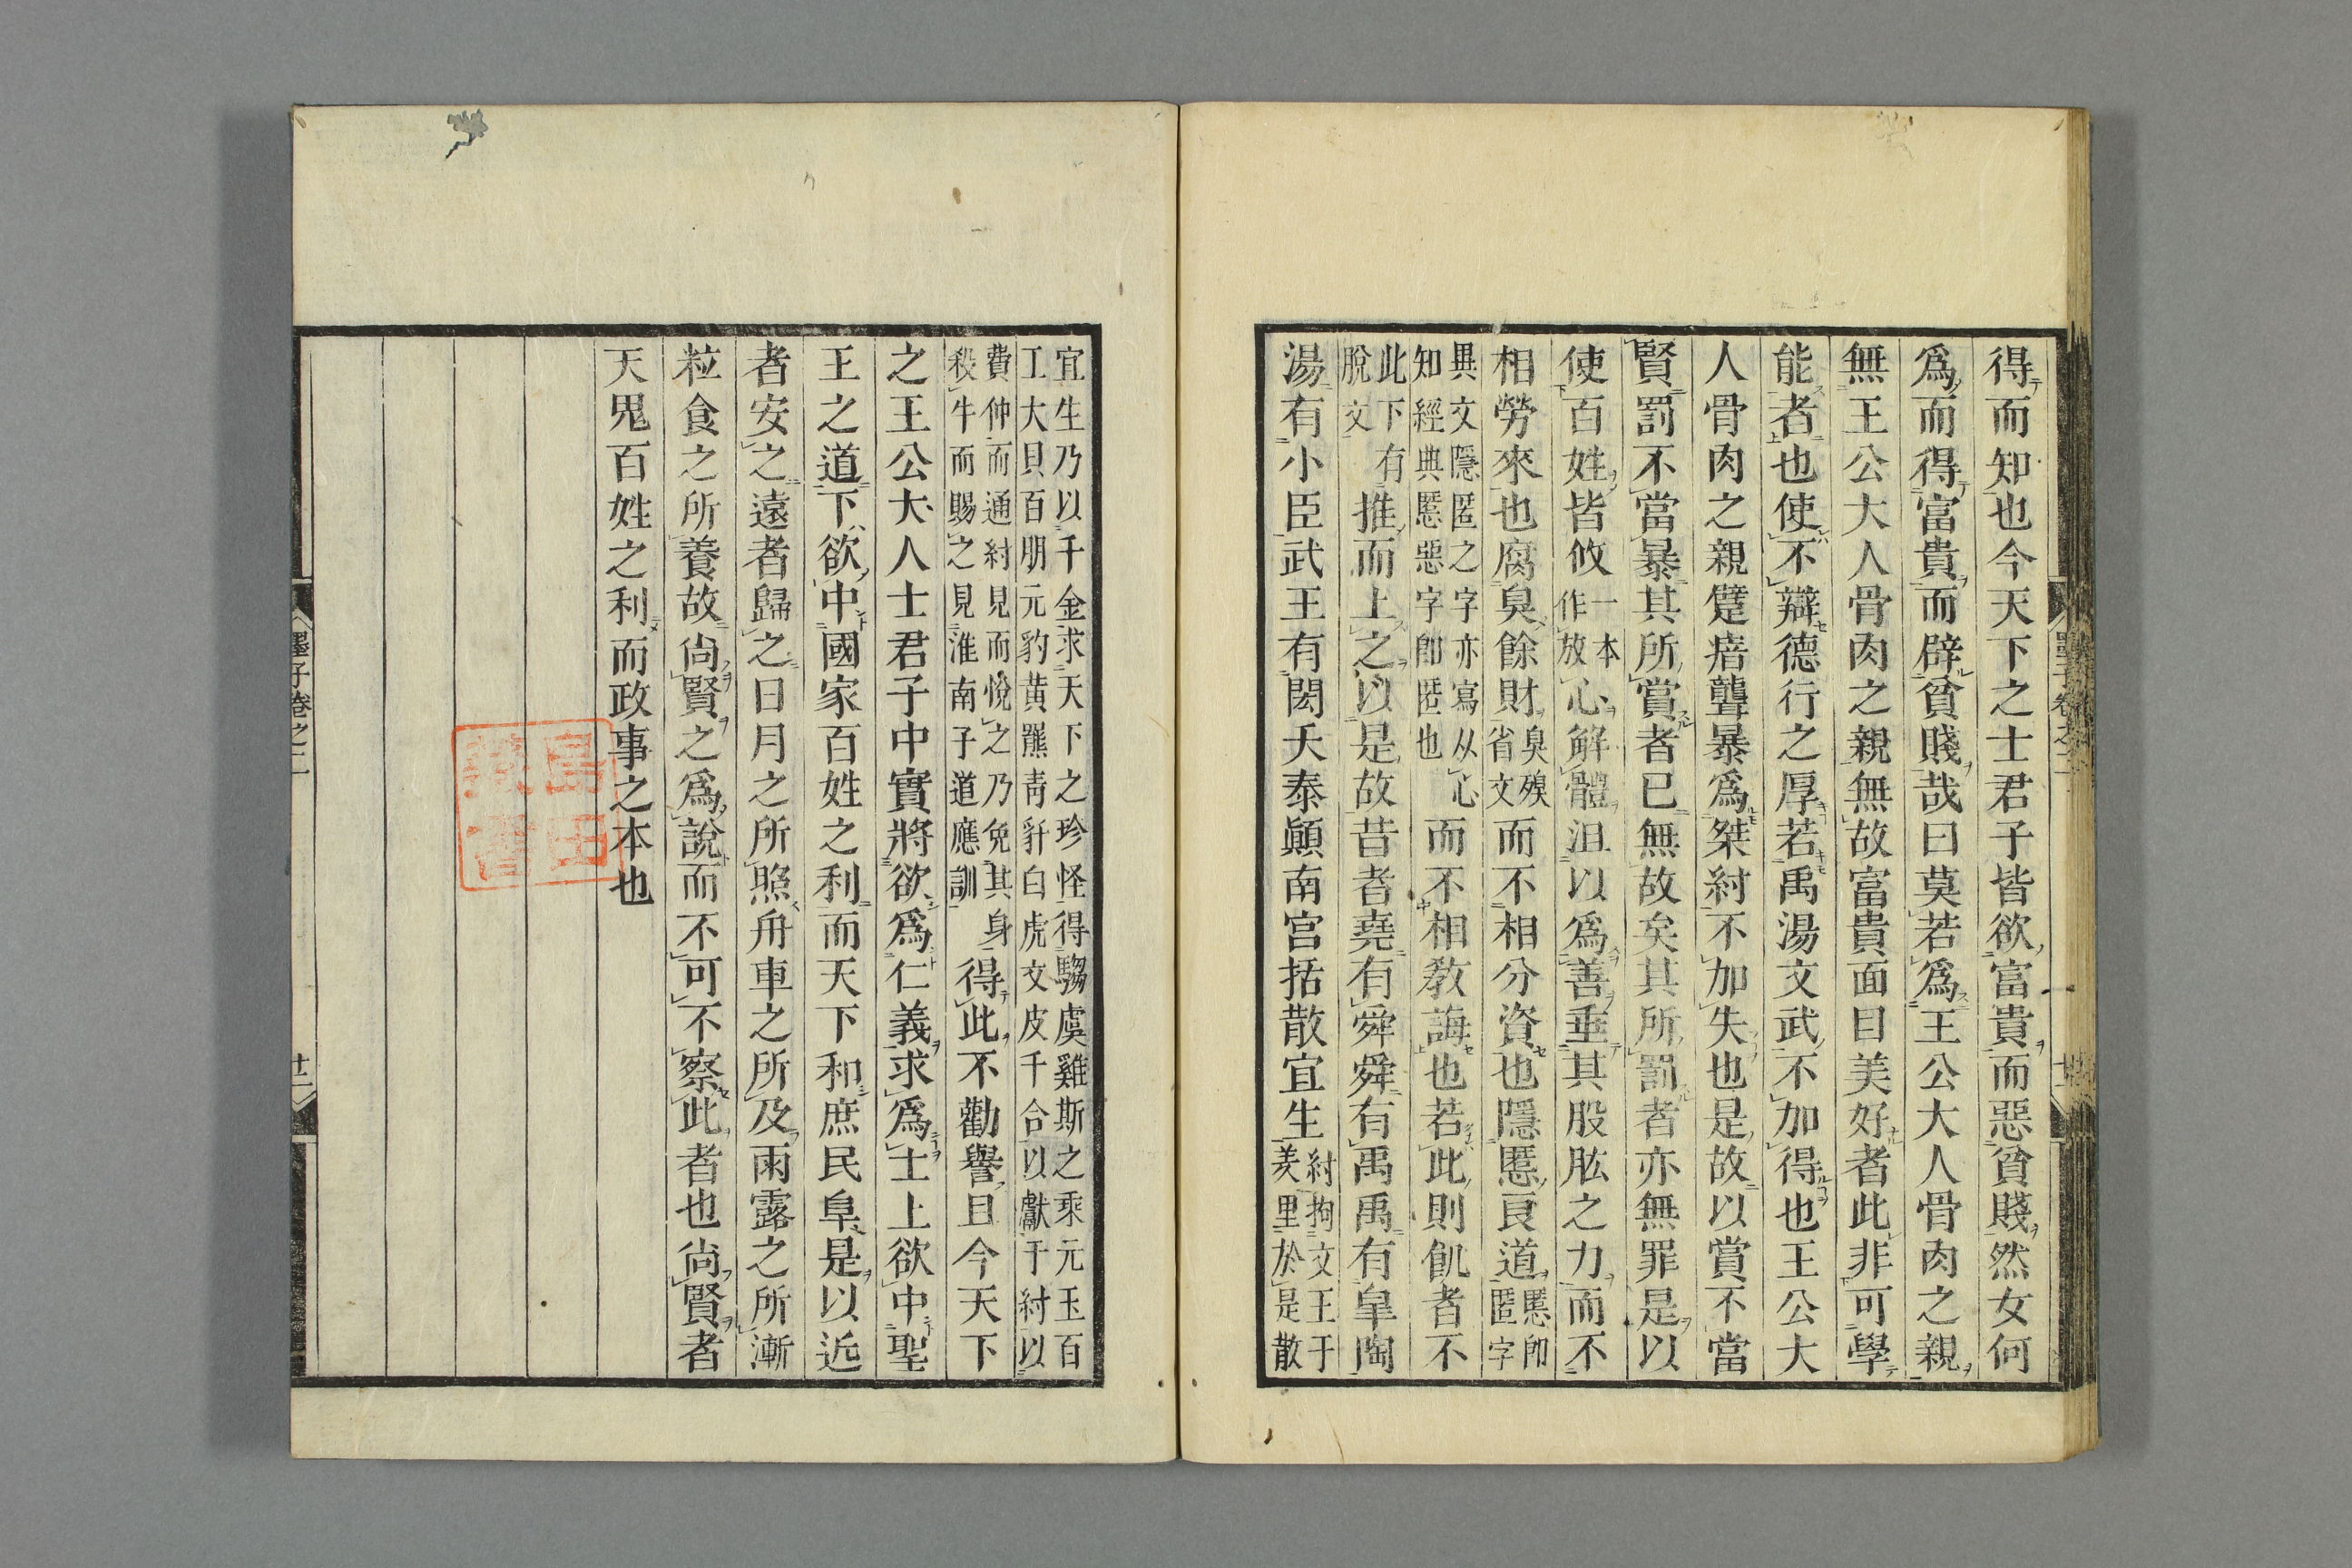 得而知也今天下之士君子皆欲富貴而惡貧賤然女何
爲而得富貴而辟貧賤哉曰莫若爲王公大人骨肉之親
無王公大人骨肉之親無故富貴面目美好者此非可學
能者也使不辯德行之厚若禹湯文武不加得也王公大
人骨肉之親躄瘖聾暴爲桀紂不加失也是故以賞不當
賢罰不當暴其所賞者已無故矣其所罰者亦無罪是以
使百姓皆攸一本作放心解體沮以爲善垂其股肱之力而不
相勞來也腐臭餘財臭殠省文而不相分資也隱慝良道慝卽匿字
異文隱匿之字亦寫从心知經典慝惡字卽匿也而不相敎誨也若此則飢者不
此下有脫文推而上之以是故昔者堯有舜舜有禹禹有皐陶
湯有小臣武王有閎夭泰顚南宮括散宜生紂拘文王于羑里於是散
宜生乃以千金求天下之珍怪得騶虞雞斯之乘元玉百
工大貝百朋元豹黄羆靑豻白虎文皮千合以獻于紂以
費仲而通紂見而悅之乃免其身
殺牛而賜之見淮南子道應訓
得此不勸譽且今天下
之王公大人士君子中實將欲爲仁義求爲士上欲中聖
王之道下欲中國家百姓之利而天下和庶民阜是以近
者安之遠者歸之日月之所照舟車之所及雨露之所漸
粒食之所養故尙賢之爲說而不可不察此者也尙賢者
天鬼百姓之利而政事之本也
墨子卷之二
廿二